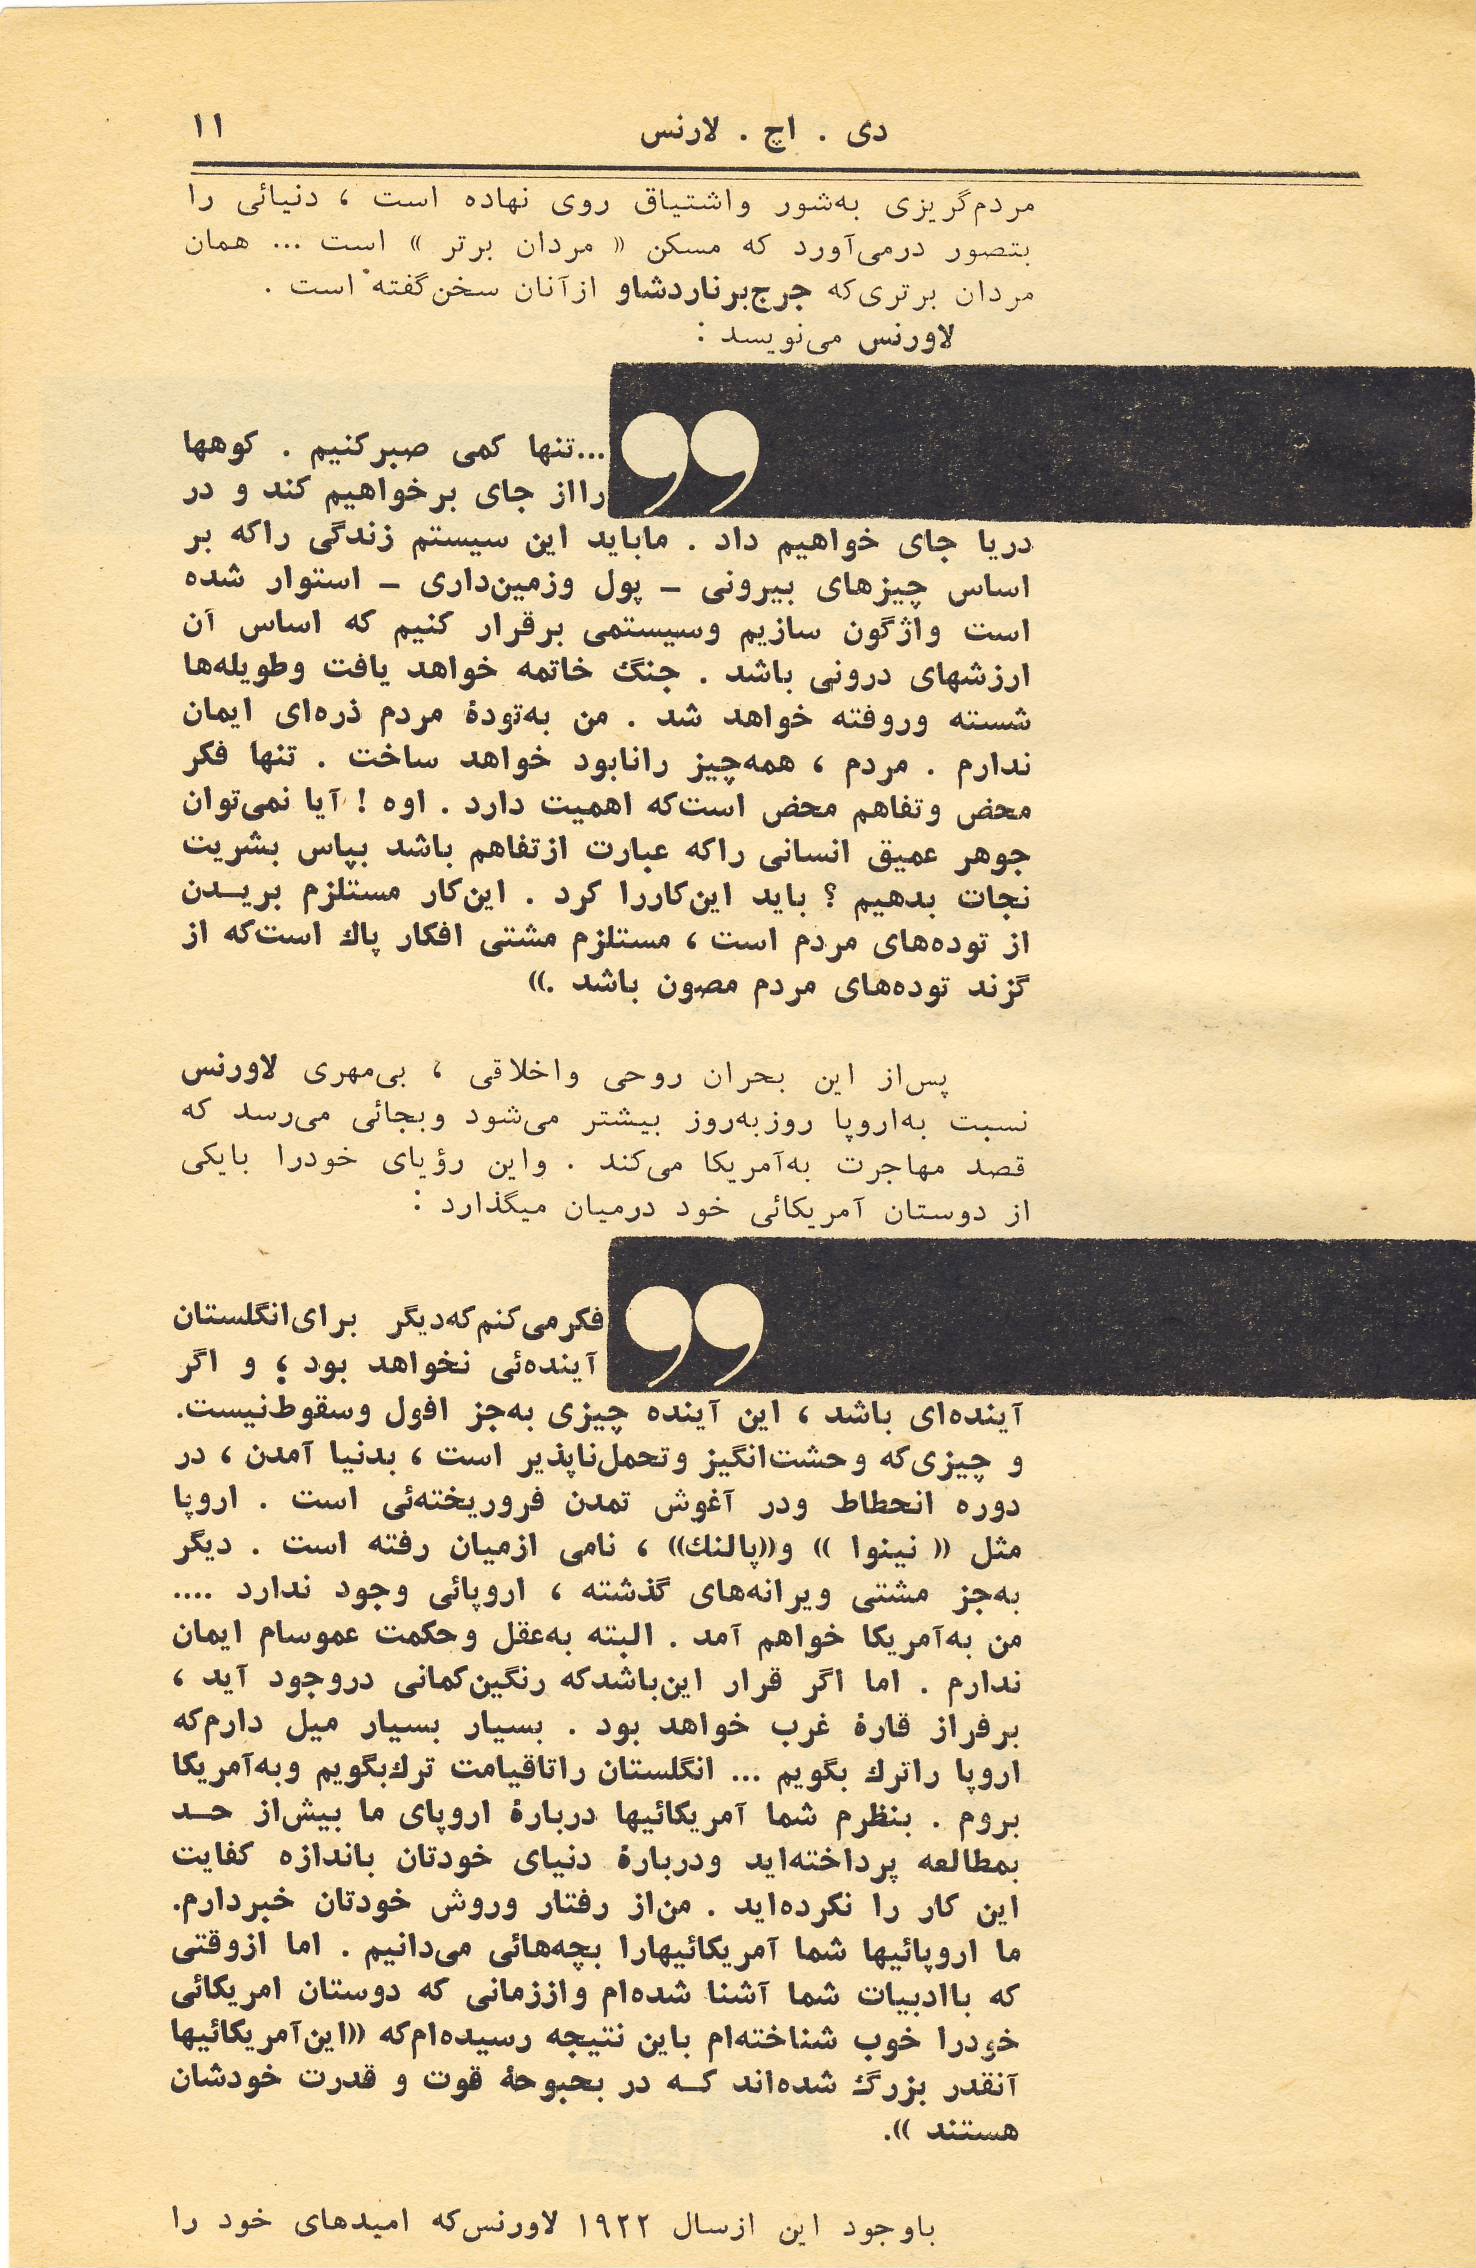 دی . اچ . لارنس ۱۱
مردم‌گریزی به‌شور واشتیاق روی نهاده است ، دنیائی را
بتصور درمی‌آورد که مسکن « مردان برتر » است ... همان
مردان برتری‌که جرج‌برناردشاو ازآنان سخن‌گفته است .
لاورنس می‌نویسد :
...تنها کمی صبرکنیم . کوهها
رااز جای برخواهیم کند و در
دریا جای خواهیم داد . ماباید این سیستم زندگی راکه بر
اساس چیزهای بیرونی – پول وزمین‌داری – استوار شده
است واژگون سازیم وسیستمی برقرار کنیم که اساس آن
ارزشهای درونی باشد . جنگ خاتمه خواهد یافت وطویله‌ها
شسته وروفته خواهد شد . من به‌تودهٔ مردم ذره‌ای ایمان
ندارم . مردم ، همه‌چیز رانابود خواهد ساخت . تنها فکر
محض وتفاهم محض است‌که اهمیت دارد . اوه ! آیا نمی‌توان
جوهر عمیق انسانی راکه عبارت ازتفاهم باشد بپاس بشریت
نجات بدهیم ؟ باید این‌کاررا کرد . این‌کار مستلزم بریـدن
از توده‌های مردم است ، مستلزم مشتی افکار پاك است‌که از
گزند توده‌های مردم مصون باشد .»
پس‌از این بحران روحی واخلاقی ، بی‌مهری لاورنس
نسبت به‌اروپا روزبه‌روز بیشتر می‌شود وبجائی می‌رسد که
قصد مهاجرت به‌آمریکا می‌کند . واین رؤیای خودرا بایکی
از دوستان آمریکائی خود درمیان میگذارد :
فکرمی‌کنم‌که‌دیگر برای‌انگلستان
آینده‌ئی نخواهد بود ؛ و اگر
آینده‌ای باشد ، این آینده چیزی به‌جز افول وسقوط‌نیست.
و چیزی‌که وحشت‌انگیز وتحمل‌ناپذیر است ، بدنیا آمدن ، در
دوره انحطاط ودر آغوش تمدن فروریخته‌ئی است . اروپا
مثل « نینوا » و«پالنك» ، نامی ازمیان رفته است . دیگر
به‌جز مشتی ویرانه‌های گذشته ، اروپائی وجود ندارد ....
من به‌آمریکا خواهم آمد . البته به‌عقل وحکمت عموسام ایمان
ندارم . اما اگر قرار این‌باشدکه رنگین‌کمانی دروجود آید ،
برفراز قارهٔ غرب خواهد بود . بسیار بسیار میل دارم‌که
اروپا راترك بگویم ... انگلستان راتاقیامت ترك‌بگویم وبه‌آمریکا
بروم . بنظرم شما آمریکائیها دربارهٔ اروپای ما بیش‌از حـد
بمطالعه پرداخته‌اید ودربارهٔ دنیای خودتان باندازه کفایت
این کار را نکرده‌اید . من‌از رفتار وروش خودتان خبردارم.
ما اروپائیها شما آمریکائیهارا بچه‌هائی می‌دانیم . اما ازوقتی
که باادبیات شما آشنا شده‌ام واززمانی که دوستان امریکائی
خودرا خوب شناخته‌ام باین نتیجه رسیده‌ام‌که «این‌آمریکائیها
آنقدر بزرگ شده‌اند کـه در بحبوحهٔ قوت و قدرت خودشان
هستند ».
باوجود این ازسال ۱۹۲۲ لاورنس‌که امیدهای خود را